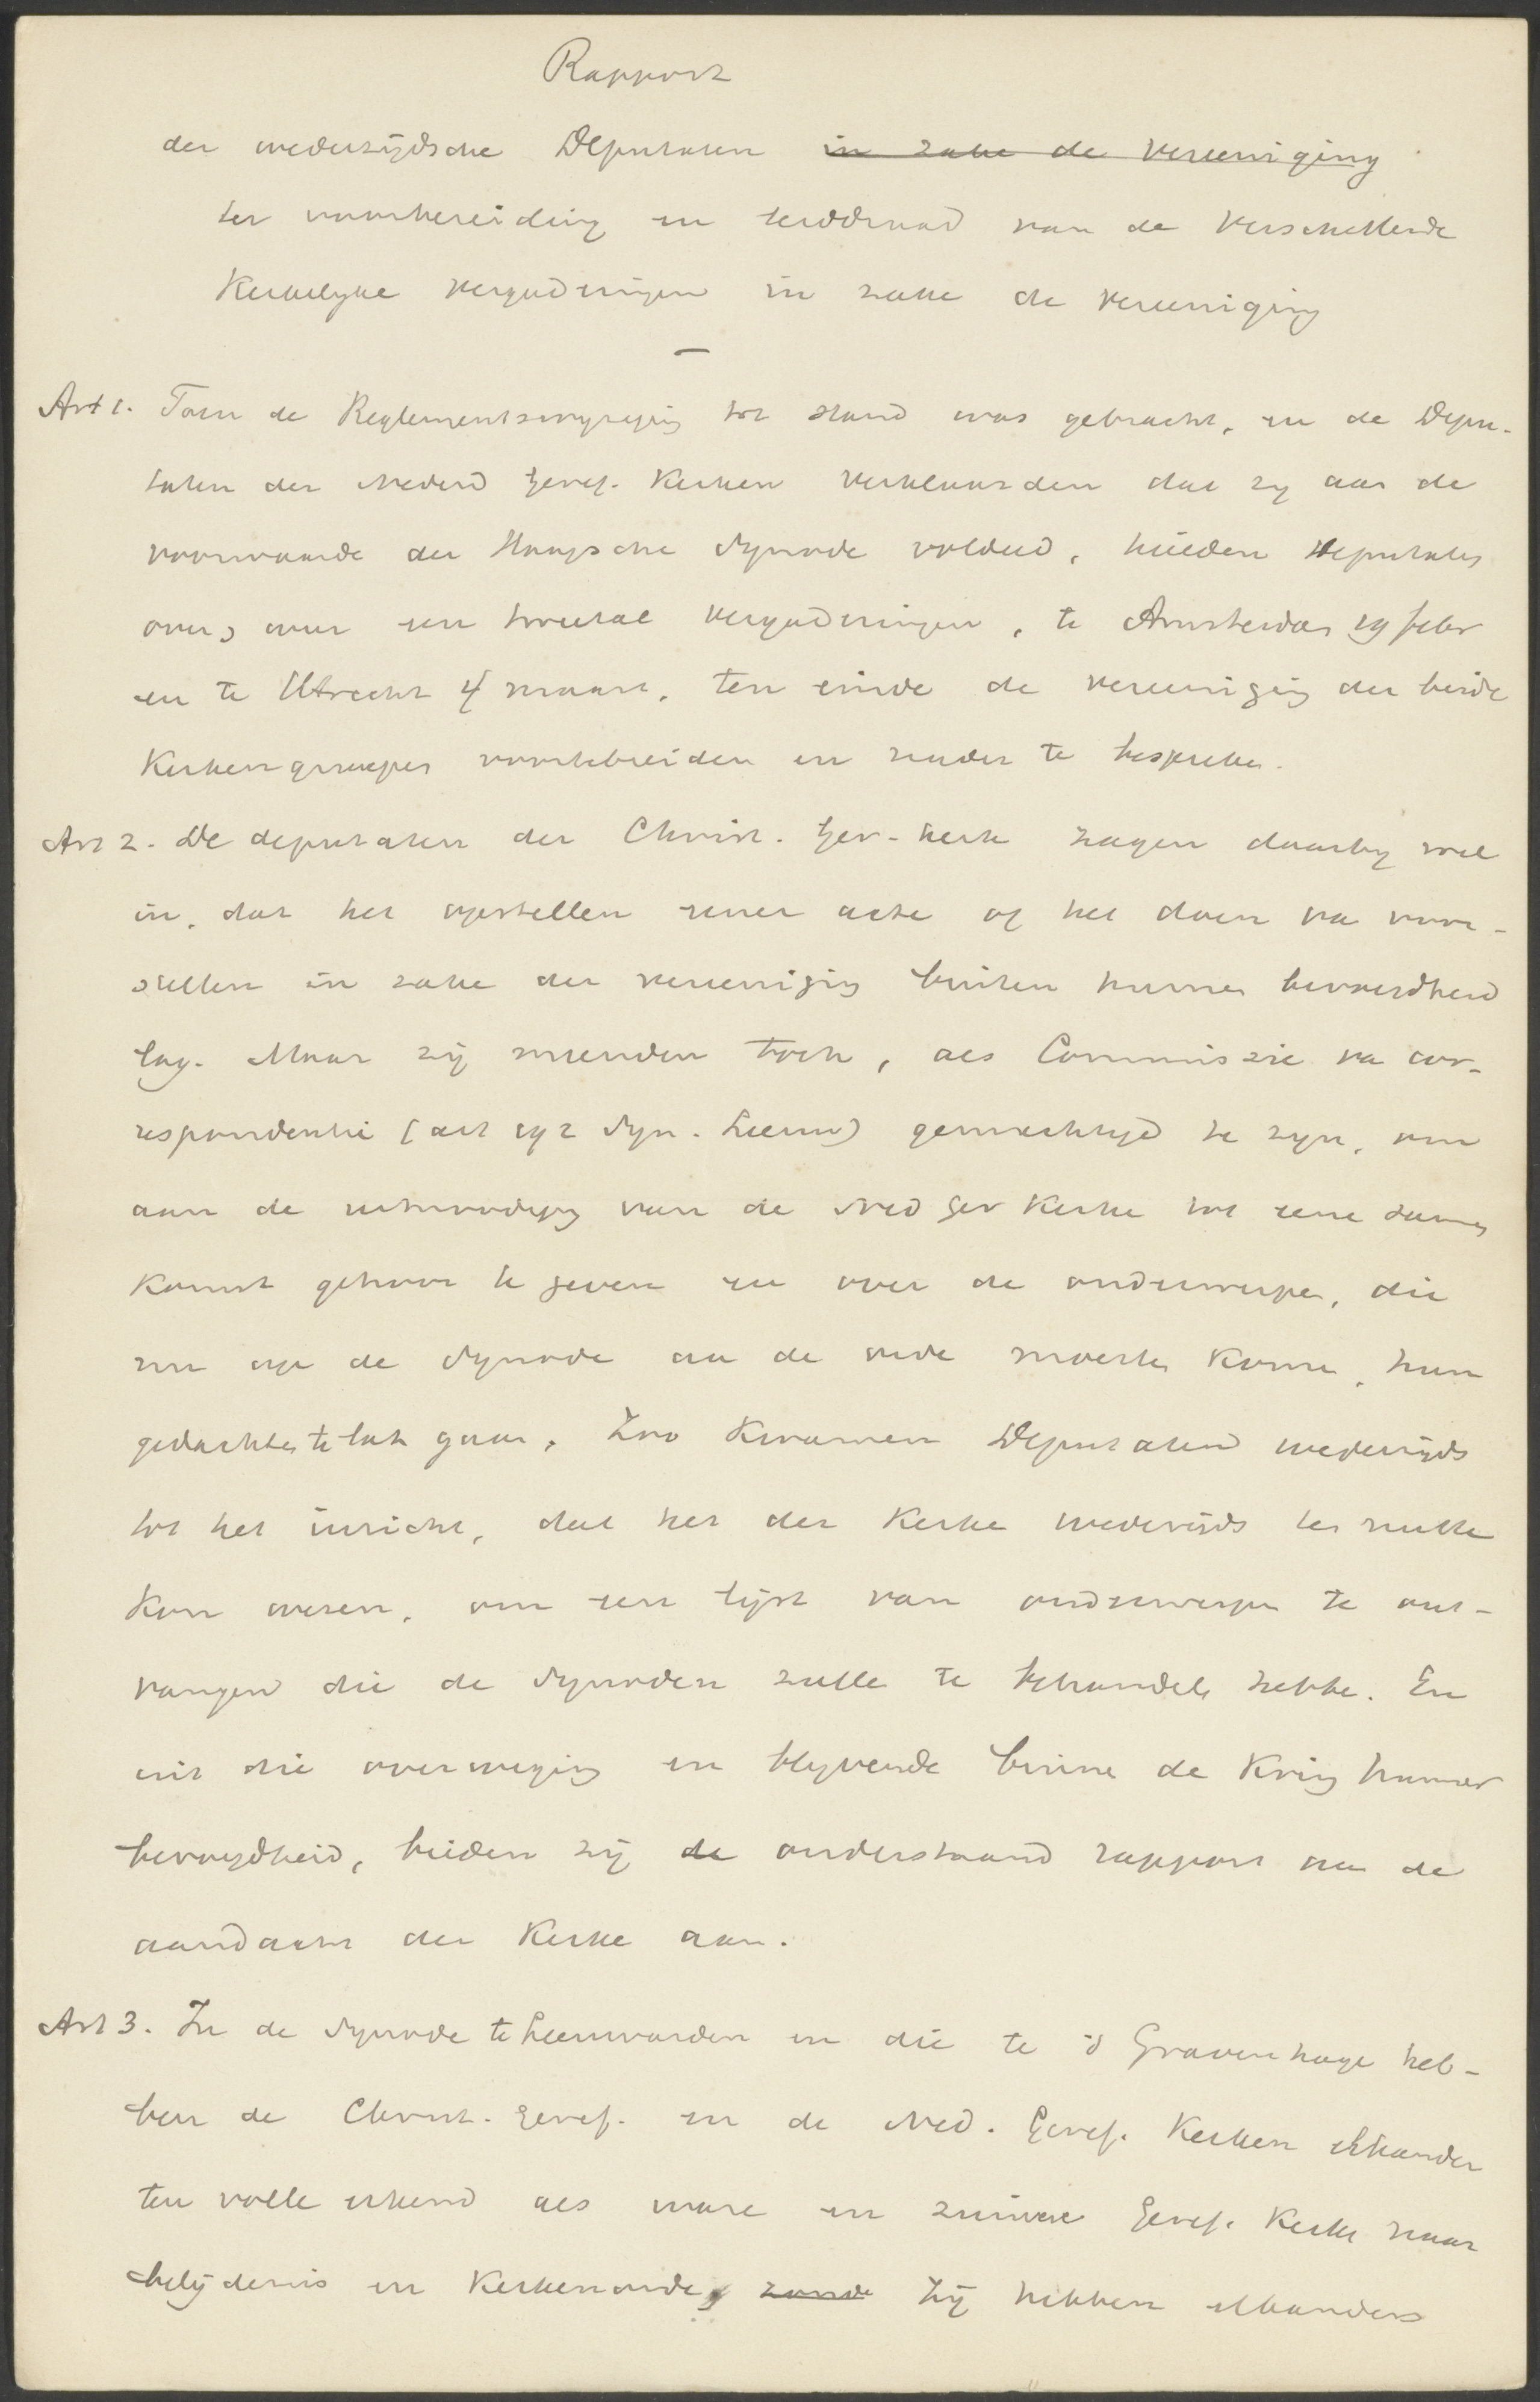 Rapport
der wederzijdsche Deputaten in zake de Vereeniging
ter voorbereiding en leiddraad van de verschillende
Kerkelyke vergaderingen in zake de Vereeniging
—
Art 1. Toen de Reglementswyziging tot stand was gebracht, en de Depu-
taten der Nederd Geref. Kerken verklaarden dat zy aan de
voorwaarde der Haagsche Synode voldeed, hielden Deputaten
over, over een tweetal vergaderingen, te Amsterdam 19 febr
en te Utrecht 4 maart, ten einde de vereeniging der beide
Kerkengroepen voortebreiden en nader te bespreken.
Art 2. De deputaten der Christ. Ger. kerk zagen daarby wel
in, dat het opstellen eener acte of het doen van voor-
stellen in zake der vereeniging buiten hunne bevoegdheid
lag. Maar zij meenden toch, als Commissie van cor-
respondentie (art 192 Syn. Leeuw) gemachtigd te zyn, om
aan de uitnoodiging van de Ned Ger Kerken tot eene samen
komst gehoor te geven en over de onderwerpen, die
nu op de Synode aan de orde moesten komen, hun
gedachten te laten gaan. Zoo kwamen Deputaten wederzijds
tot het inzicht, dat het der Kerken wederzijds ten nutte
kon wezen, om een lijst van onderwerpen te ont-
vangen die de Synoden zullen te behandelen hebben. En
uit die overweging en blyvende binnen de Kring hunner
bevoegdheid, bieden zij de onderstaand rapport aan de
aandacht der Kerken aan.
Art 3. In de Synode te Leeuwarden en die te 's Gravenhage heb-
ben de Christ. Geref. en de Ned. Geref. Kerken elkander
ten volle erkend als ware en zuivere Geref. Kerken naar
belijdenis en Kerkenorde, zonde Zij hebben elkanders